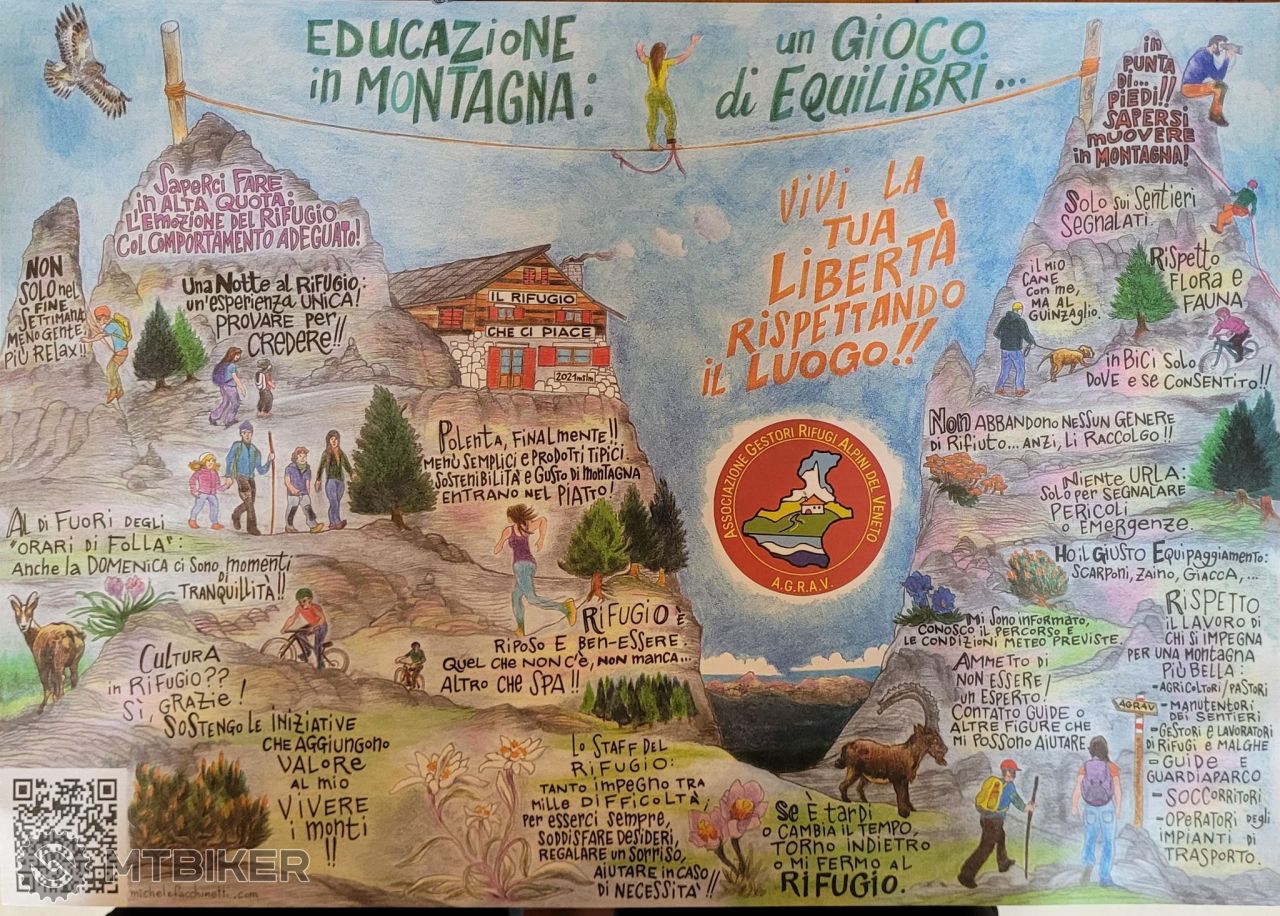 EDUCAZIONE
in MONTAGNA:
un GIOCO
di EQUILIBRI...
in
PUNTA
DI...
PIEDI!!
SAPERSI
MUOVERE
in MONTAGNA!
SAPERCI FARE
in ALTA QUOTA:
L'EMOZIONE DEL RIFUGIO
COL COMPORTAMENTO ADEGUATO!
NON
SOLO nel
FINE
SETTIMANA
MENO GENTE,
PIÙ RELAX!!
Una NOTTE al RIFUGIO:
un'esperienza UNICA!
PROVARE per
CREDERE!!
IL RIFUGIO
CHE CI PIACE
2021mslm
POLENTA, FINALMENTE!!
MENÙ SEMPLICI e PRODOTTI TIPICI.
SOSTENIBILITÀ e GUSTO DI MONTAGNA
ENTRANO NEL PIATTO!
AL DI FUORI DEGLI
"ORARI DI FOLLA":
Anche la DOMENICA ci SONO momenti
DI
TRANQUILLITÀ!!
RIFUGIO È
RIPOSO E BEN-ESSERE.
QUEL CHE NON C'È, NON MANCA...
ALTRO CHE SPA!!
CULTURA
in RIFUGIO??
SÌ, GRAZIE!
SOSTENGO LE INIZIATIVE
CHE AGGIUNGONO
VALORE
AL MIO
VIVERE
i MONTI
!!
LO STAFF DEL
RIFUGIO:
TANTO IMPEGNO TRA
MILLE DIFFICOLTÀ,
per ESSERCI SEMPRE,
SODDISFARE DESIDERI,
REGALARE un SORRISO,
AIUTARE IN CASO
DI NECESSITÀ!!
VIVI LA
TUA
LIBERTÀ
RISPETTANDO
IL LUOGO!!
ASSOCIAZIONE GESTORI RIFUGI ALPINI DEL VENETO
A.G.R.A.V.
SOLO SUI SENTIERI
SEGNALATI.
IL MIO
CANE
CON me,
MA AL
GUINZAGLIO.
RISPETTO
FLORA e
FAUNA
in BICI SOLO
DOVE e SE CONSENTITO!!
NON ABBANDONO NESSUN GENERE
DI RIFIUTO... ANZI, LI RACCOLGO!!
NIENTE URLA:
SOLO per SEGNALARE
PERICOLI
O EMERGENZE.
HO IL GIUSTO EQUIPAGGIAMENTO:
SCARPONI, ZAINO, GIACCA,...
MI SONO INFORMATO,
CONOSCO IL PERCORSO E
LE CONDIZIONI METEO PREVISTE.
AMMETTO DI
NON ESSERE
un ESPERTO!
CONTATTO GUIDE O
ALTRE FIGURE CHE
MI POSSONO AIUTARE.
RISPETTO
IL LAVORO DI
CHI SI IMPEGNA
PER UNA MONTAGNA
PIÙ BELLA:
-AGRICOLTORI/PASTORI
- MANUTENTORI
DEI SENTIERI
-GESTORI e LAVORATORI
DI RIFUGI e MALGHE
- GUIDE e
GUARDIAPARCO
- SOCCORRITORI
- OPERATORI DEGLI
IMPIANTI DI
TRASPORTO.
AGRAV
SE È TARDI
O CAMBIA IL TEMPO,
TORNO INDIETRO
O MI FERMO AL
RIFUGIO.
MTBIKER
michelefacchinetti.com